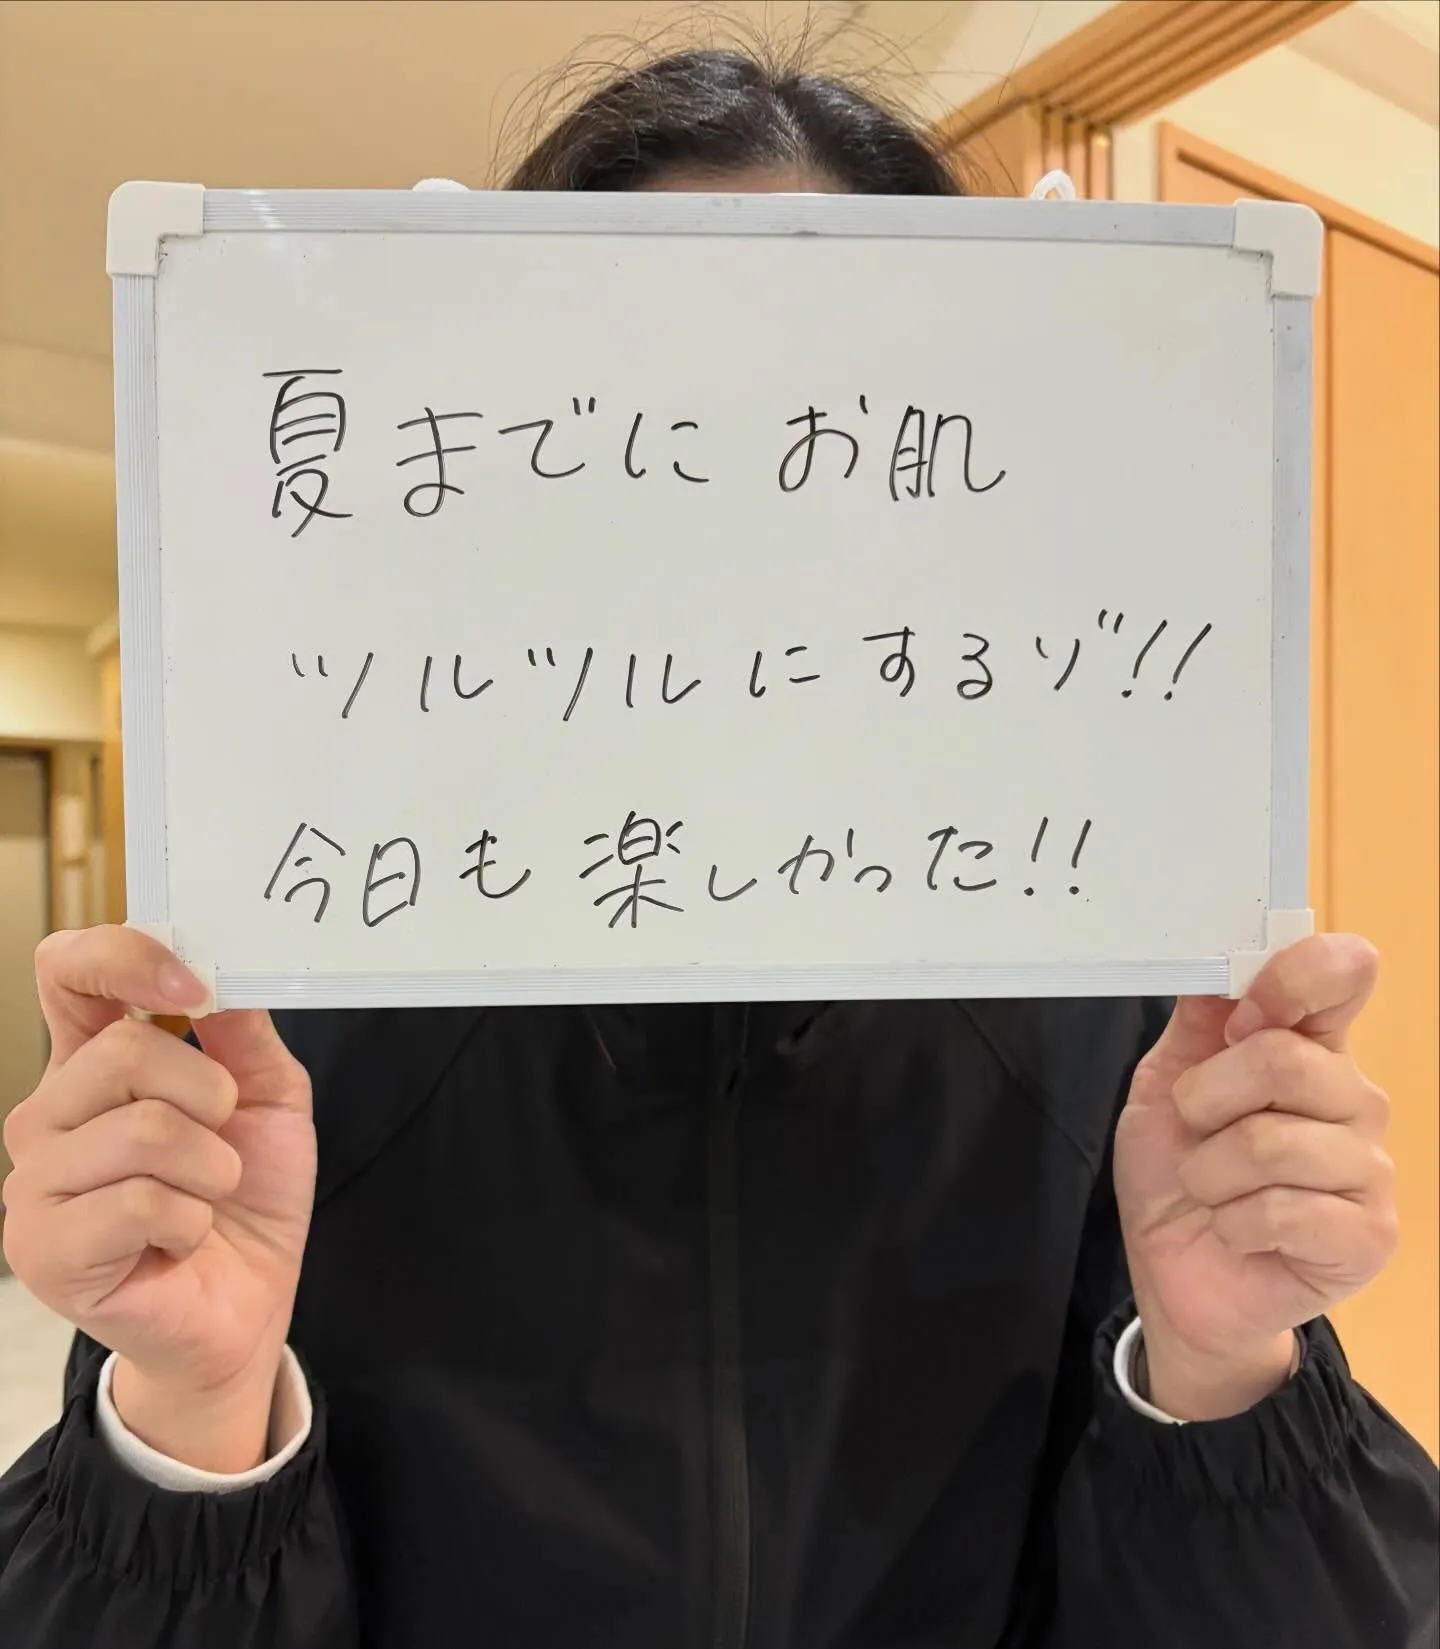 夏までにお肌
ツルツルにするゾ!!
今日も楽しかった!!